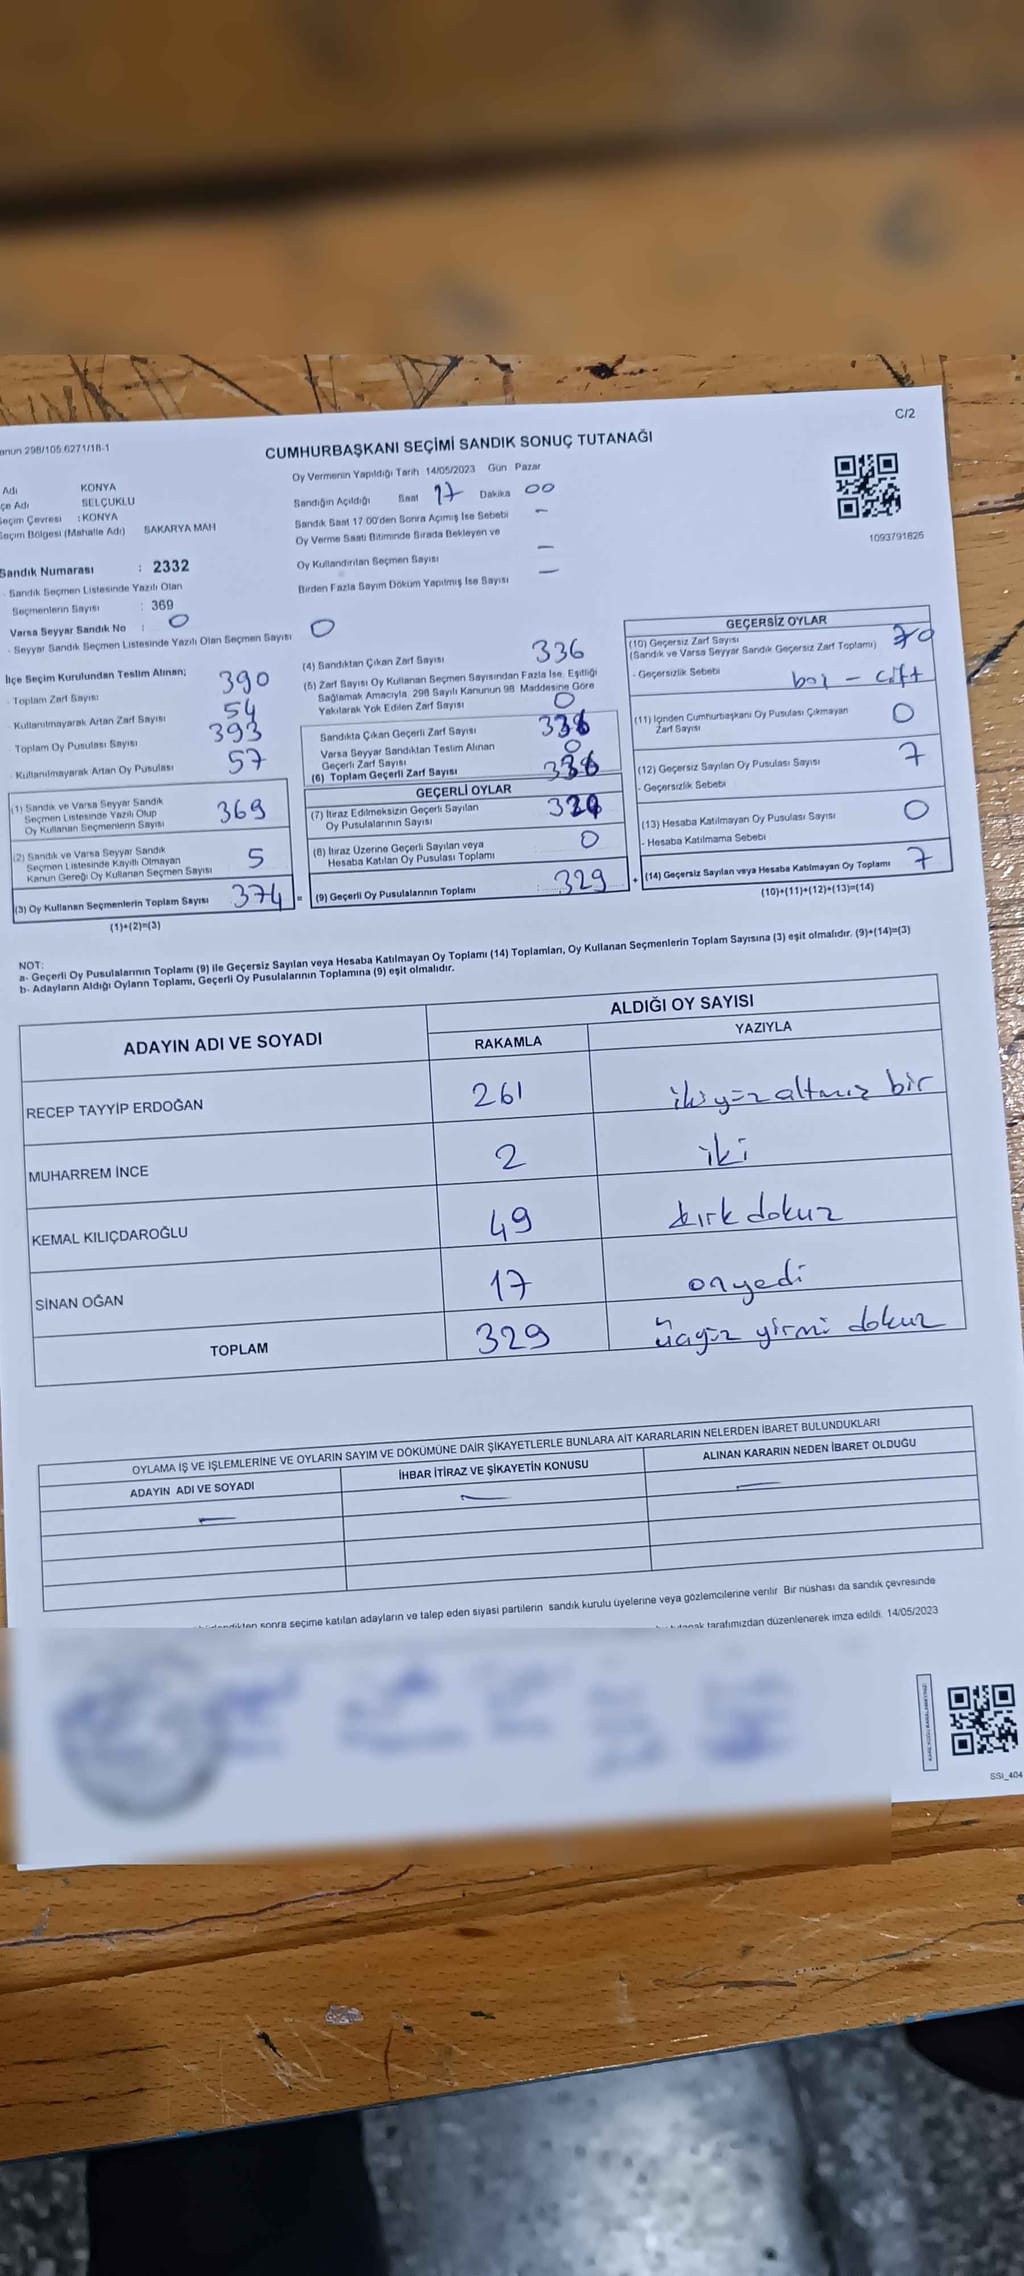 C/2
anun 298/105 6271/18-1
CUMHURBAŞKANI SEÇİMİ SANDIK SONUÇ TUTANAĞI
Oy Vermenin Yapıldığı Tarih 14/05/2023 Gün Pazar
Adı KONYA
çe Adı SELÇUKLU
eçim Çevresi : KONYA
eçim Bölgesi (Mahalle Adı) SAKARYA MAH
Sandığın Açıldığı Saat 17 Dakika 00
Sandık Saat 17 00'den Sonra Açımış İse Sebebi -
Oy Verme Saati Bitiminde Sırada Bekleyen ve
Oy Kullandırılan Seçmen Sayısı -
Birden Fazla Sayım Döküm Yapılmış İse Sayısı -
1093791625
Sandık Numarası : 2332
- Sandık Seçmen Listesinde Yazılı Olan
Seçmenlerin Sayısı : 369
Varsa Seyyar Sandık No : 0
- Seyyar Sandık Seçmen Listesinde Yazılı Olan Seçmen Sayısı 0
İlçe Seçim Kurulundan Teslim Alınan;
- Toplam Zarf Sayısı 390
- Kullanılmayarak Artan Zarf Sayısı 54
- Toplam Oy Pusulası Sayısı 393
- Kullanılmayarak Artan Oy Pusulası 57
(1) Sandık ve Varsa Seyyar Sandık
Seçmen Listesinde Yazılı Olup
Oy Kullanan Seçmenlerin Sayısı 369
(2) Sandık ve Varsa Seyyar Sandık
Seçmen Listesinde Kayıtlı Olmayan
Kanun Gereği Oy Kullanan Seçmen Sayısı 5
(3) Oy Kullanan Seçmenlerin Toplam Sayısı 374 =
(1)+(2)=(3)
(4) Sandıktan Çıkan Zarf Sayısı 336
(5) Zarf Sayısı Oy Kullanan Seçmen Sayısından Fazla İse, Eşitliği
Sağlamak Amacıyla, 298 Sayılı Kanunun 98 Maddesine Göre
Yakılarak Yok Edilen Zarf Sayısı 0
Sandıkta Çıkan Geçerli Zarf Sayısı 336
Varsa Seyyar Sandıktan Teslim Alınan
Geçerli Zarf Sayısı 0
(6) Toplam Geçerli Zarf Sayısı 336
GEÇERLİ OYLAR
(7) İtiraz Edilmeksizin Geçerli Sayılan
Oy Pusulalarının Sayısı
(8) İtiraz Üzerine Geçerli Sayılan veya
Hesaba Katılan Oy Pusulası Toplamı 0
(9) Geçerli Oy Pusulalarının Toplamı : 329 +
GEÇERSİZ OYLAR
(10) Geçersiz Zarf Sayısı
(Sandık ve Varsa Seyyar Sandık Geçersiz Zarf Toplamı) 0
- Geçersizlik Sebebi boş - çift
(11) İçinden Cumhurbaşkanı Oy Pusulası Çıkmayan
Zarf Sayısı 0
(12) Geçersiz Sayılan Oy Pusulası Sayısı 7
- Geçersizlik Sebebi
(13) Hesaba Katılmayan Oy Pusulası Sayısı 0
- Hesaba Katılmama Sebebi
(14) Geçersiz Sayılan veya Hesaba Katılmayan Oy Toplamı 7
(10)+(11)+(12)+(13)=(14)
NOT:
a- Geçerli Oy Pusulalarının Toplamı (9) ile Geçersiz Sayılan veya Hesaba Katılmayan Oy Toplamı (14) Toplamları, Oy Kullanan Seçmenlerin Toplam Sayısına (3) eşit olmalıdır. (9)+(14)=(3)
b- Adayların Aldığı Oyların Toplamı, Geçerli Oy Pusulalarının Toplamına (9) eşit olmalıdır.
ADAYIN ADI VE SOYADI ALDIĞI OY SAYISI
RAKAMLA YAZIYLA
RECEP TAYYİP ERDOĞAN 261 ikiyüzaltmış bir
MUHARREM İNCE 2 iki
KEMAL KILIÇDAROĞLU 49 kırkdokuz
SİNAN OĞAN 17 onyedi
TOPLAM 329 üçyüz yirmi dokuz
OYLAMA İŞ VE İŞLEMLERİNE VE OYLARIN SAYIM VE DÖKÜMÜNE DAİR ŞİKAYETLERLE BUNLARA AİT KARARLARIN NELERDEN İBARET BULUNDUKLARI
ADAYIN ADI VE SOYADI İHBAR İTİRAZ VE ŞİKAYETİN KONUSU ALINAN KARARIN NEDEN İBARET OLDUĞU
- - -
sonra seçime katılan adayların ve talep eden siyasi partilerin sandık kurulu üyelerine veya gözlemcilerine verilir Bir nüshası da sandık çevresinde
tarafımızdan düzenlenerek imza edildi. 14/05/2023
SSI_404